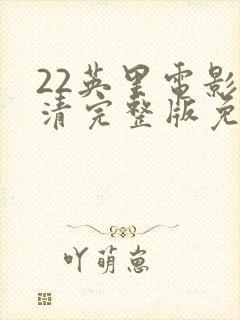 22英里电影
清完整版免
吖萌崽